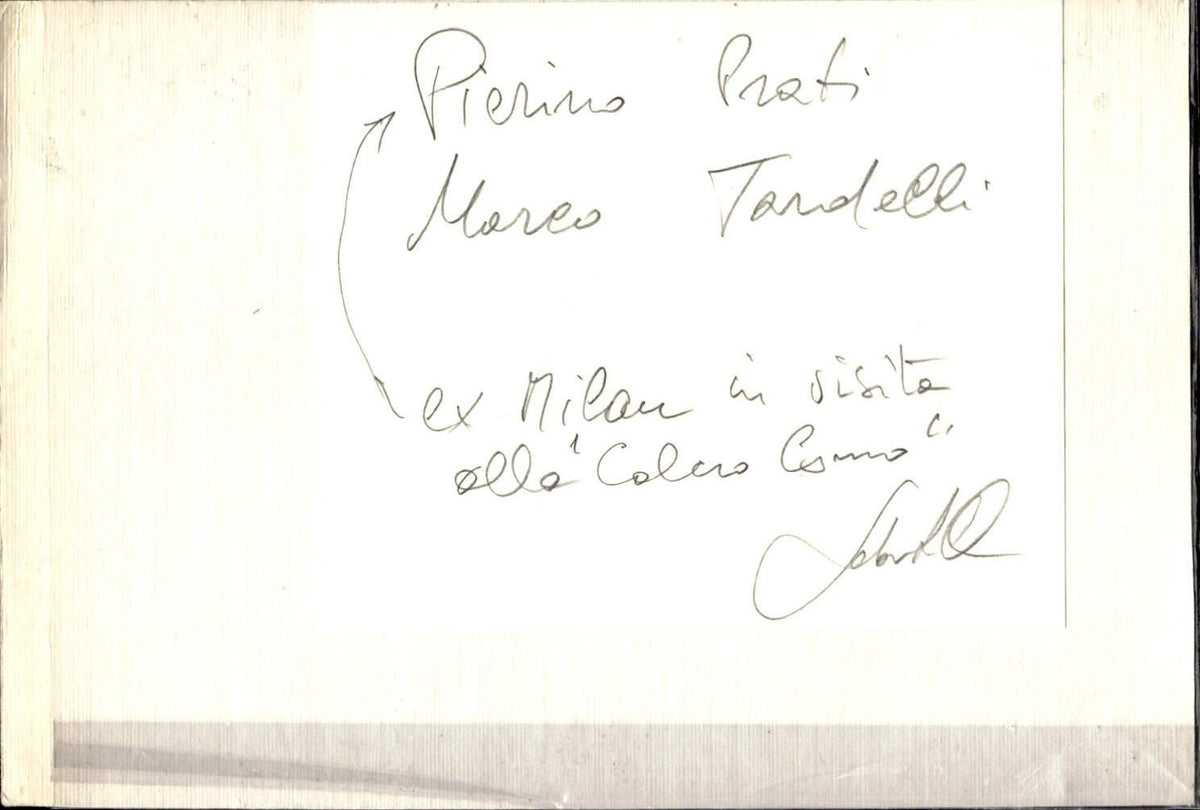 Pierino Prati
Marco Tardelli
ex Milan in visita
alla "Calcio Como"